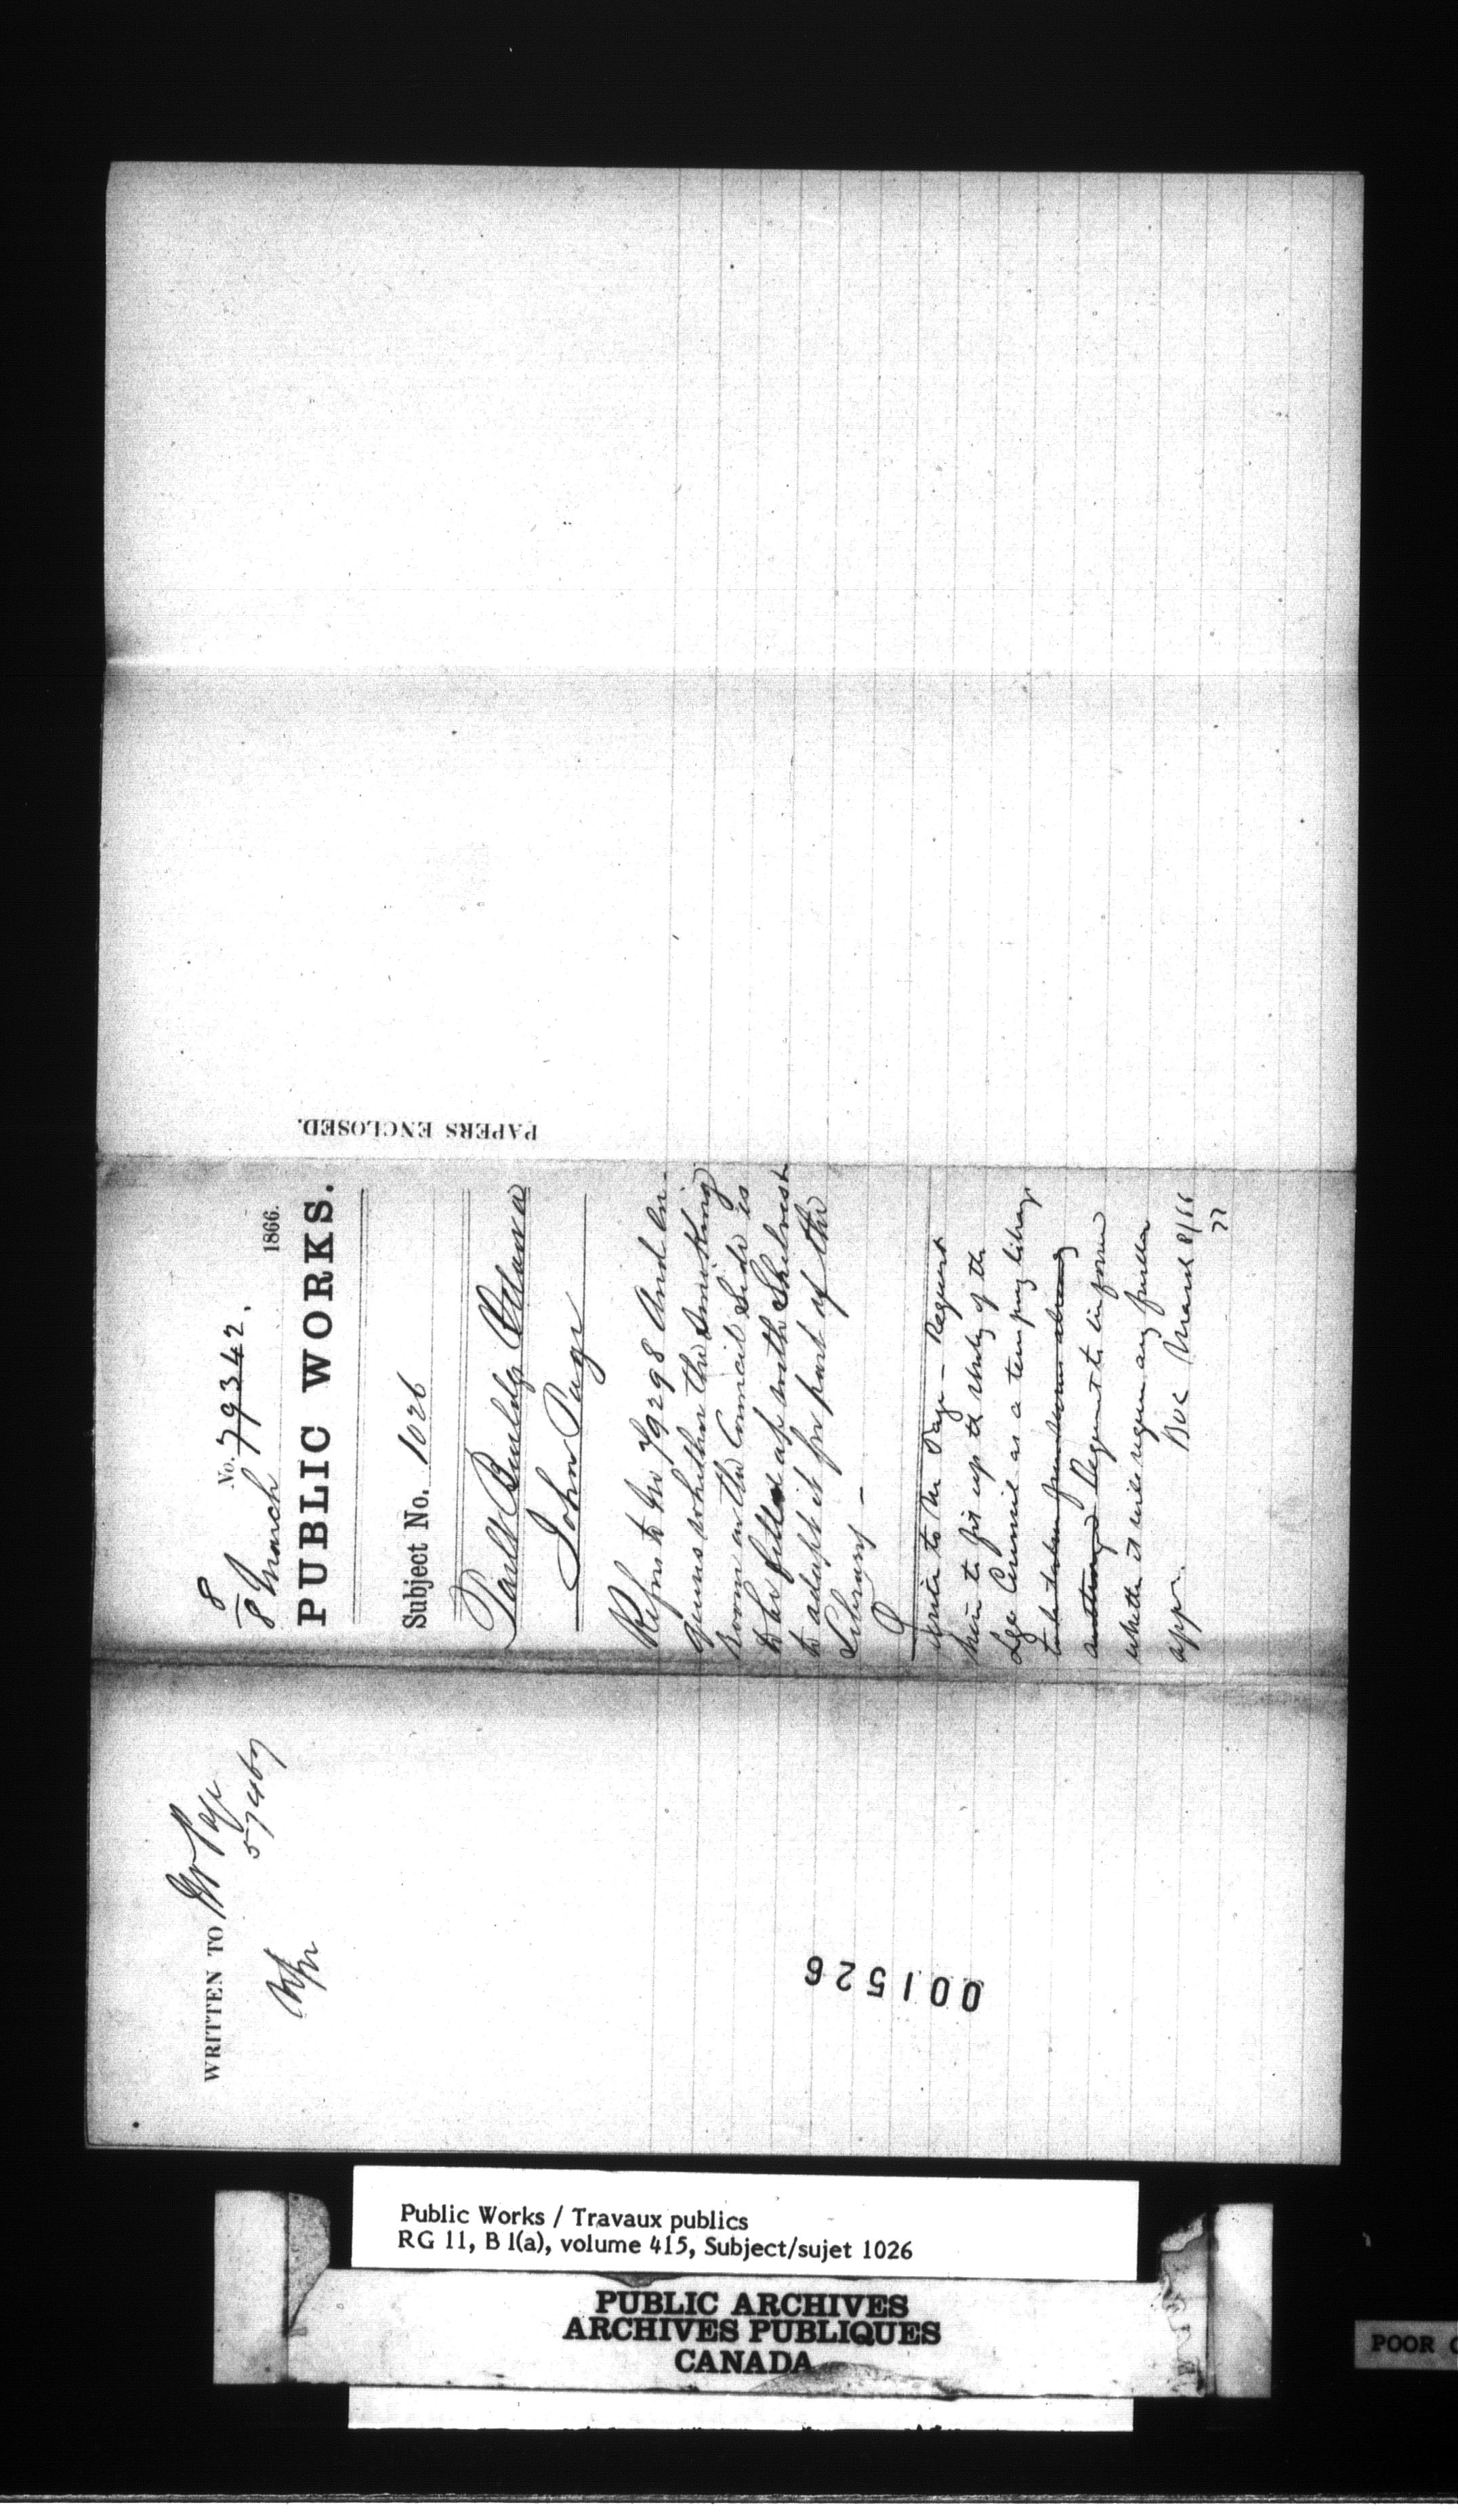 WRITTEN TO Mr Page
57467
No. 79342.
8
8 March 1866.
PUBLIC WORKS.
Subject No. 1026
Parlt Buildgs Ottawa
John Page
Refers to No 79298 and en-
quires whether the smoking
room on the Council side is
to be fitted up with Shelves &
to adapt it for part of the
Library —
Write to Mr Page — Request
him to fit up the study of the
Leg: Council as a tempory library
to be taken from room
Request to inform
whether it will require any further
appn.
March 8/66
PAPERS ENCLOSED.
001526
Public Works / Travaux publics
RG 11, B 1(a), volume 415, Subject/sujet 1026
PUBLIC ARCHIVES
ARCHIVES PUBLIQUES
CANADA
POOR